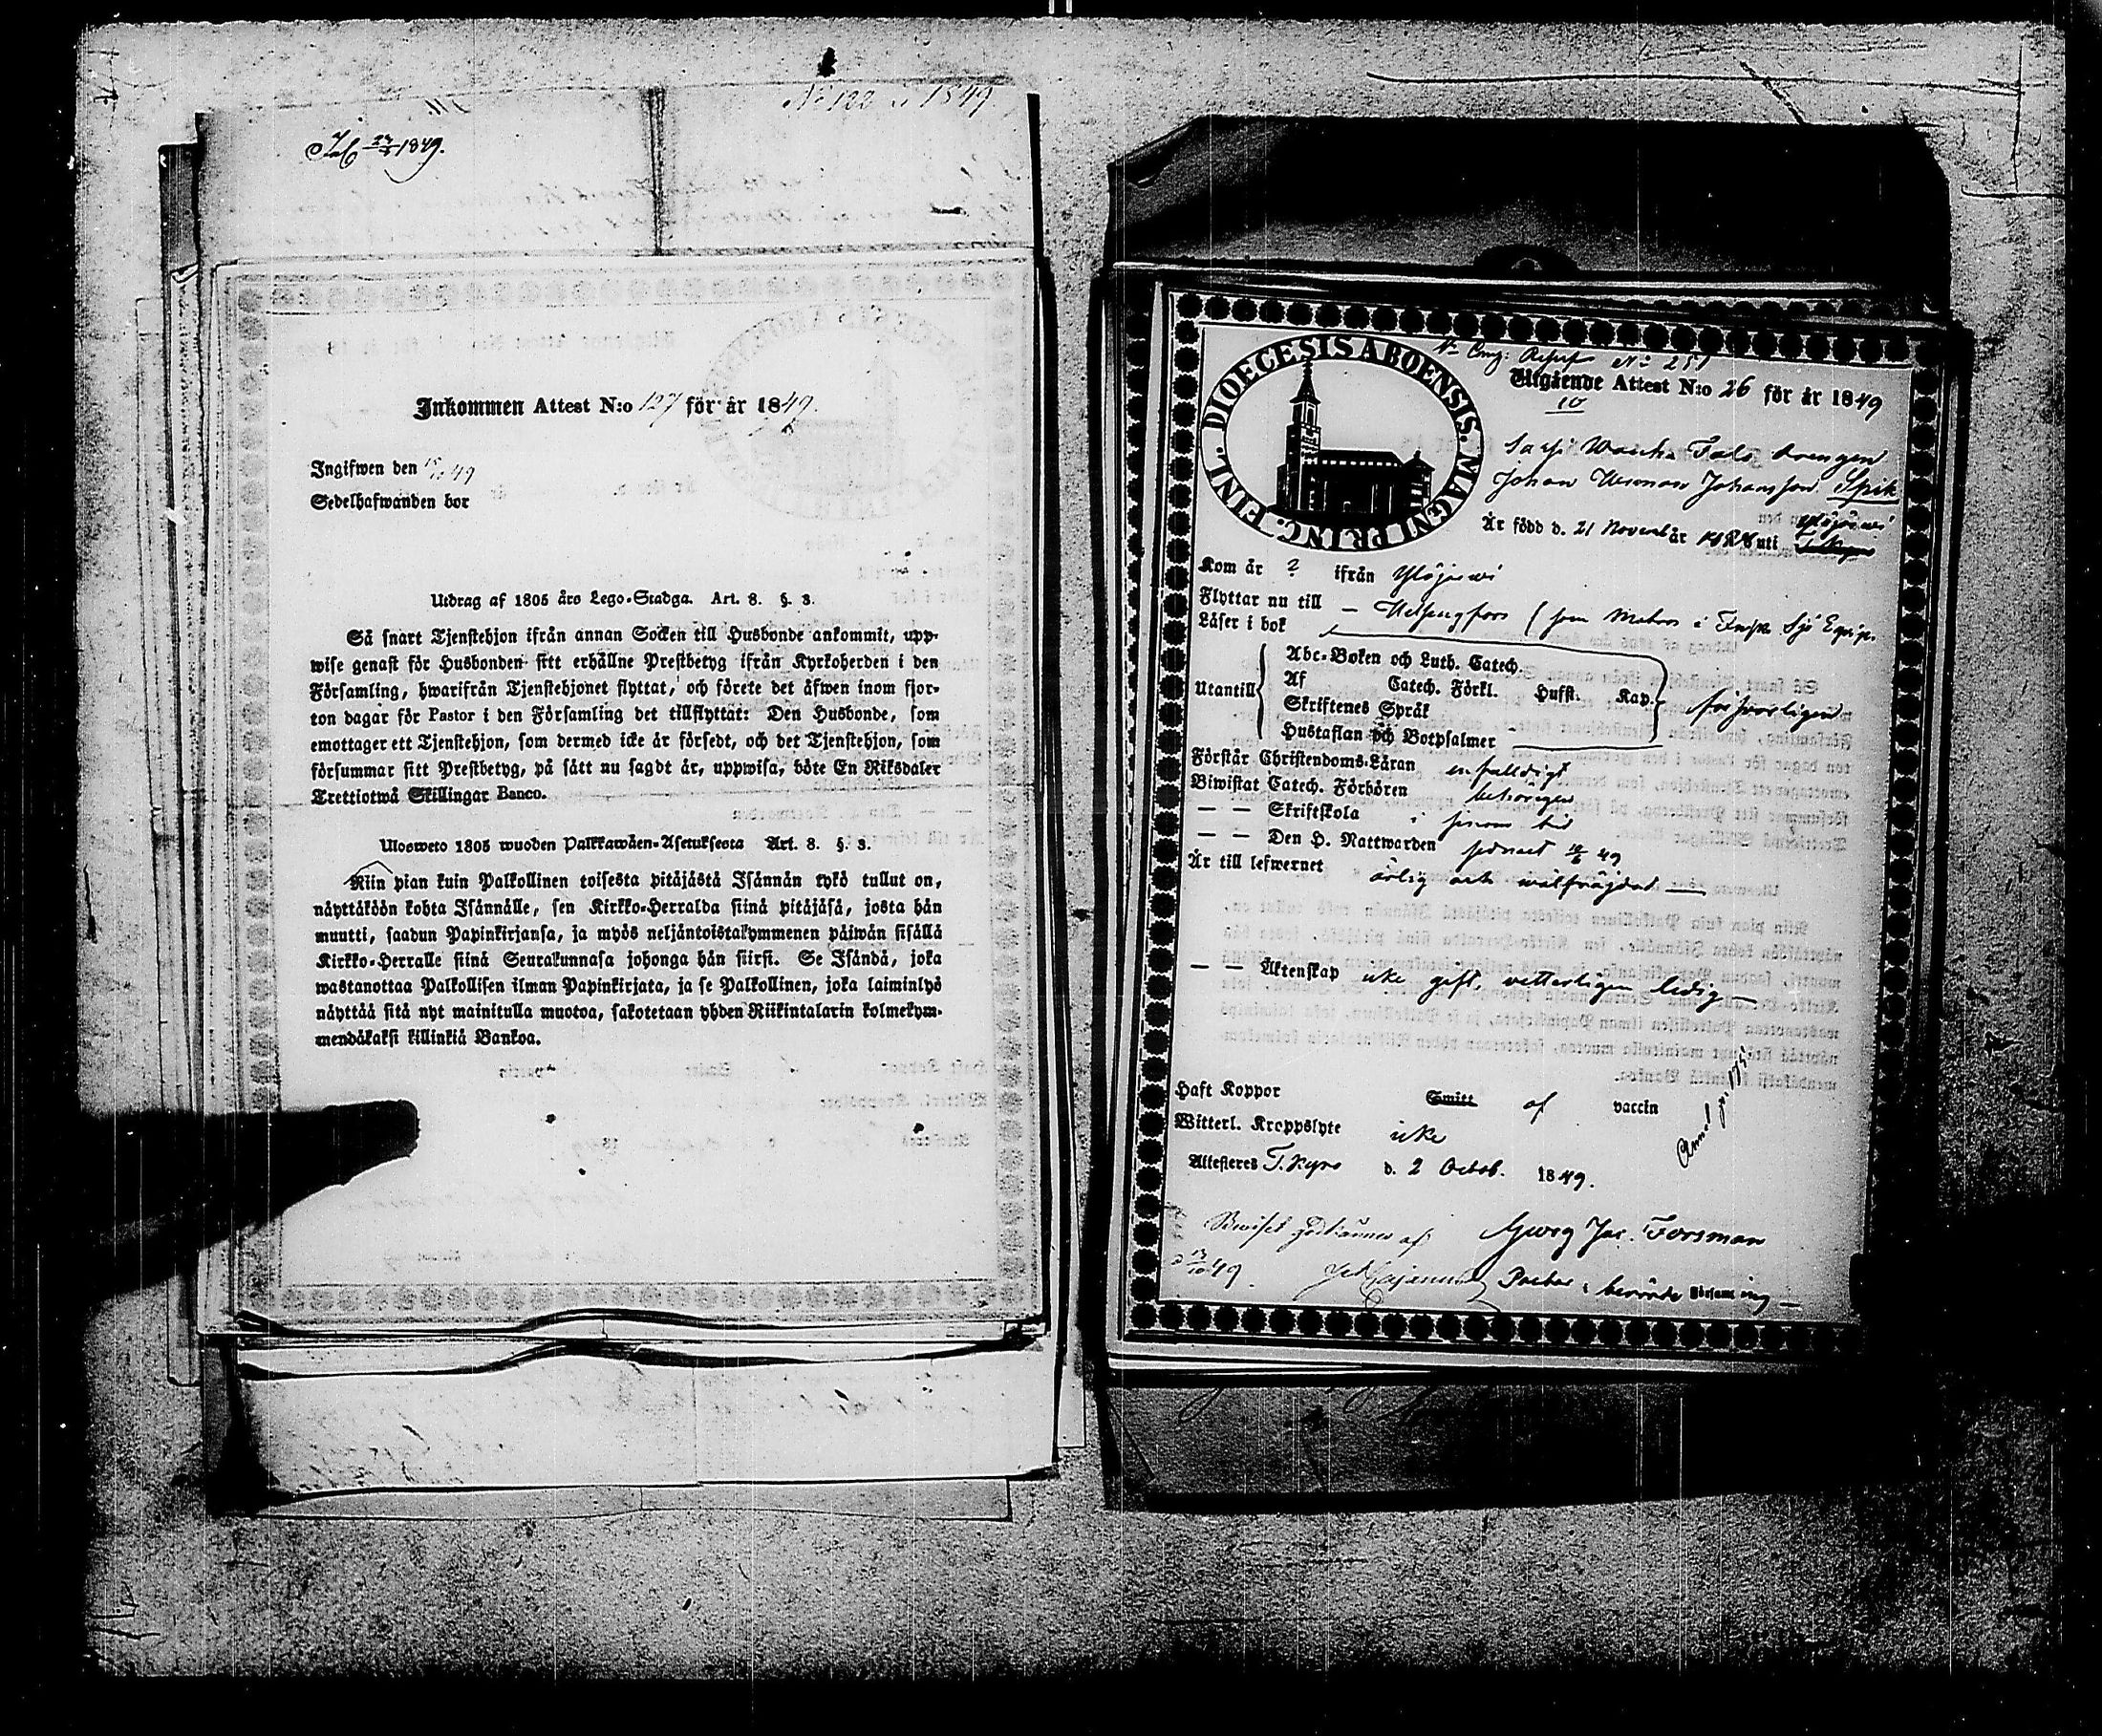 No 122 1849.
1849.
Inkommen Attest N:o 127 för år 1849.
Ingifwen den 15/10 49
Sedelhafwanden bor
Utdrag af 1805 års Lego-Stadga. Art. 8. §. 3.
Så snart Tjenstehjon ifrån annan Socken till Husbonde ankommit, upp-
wise genast för Husbonden sitt erhållne Prestbetyg ifrån Kyrkoherden i den
Församling, hwarifrån Tjenstehjonet flyttat, och förete det äfwen inom fjor-
ton dagar för Pastor i den Församling det tillflyttat: Den Husbonde, som
emottager ett Tjenstehjon, som dermed icke är försedt, och det Tjenstehjon, som
försummar sitt Prestbetyg, på sätt nu sagdt är, uppwisa, böte En Riksdaler
Trettiotwå Skillingar Banco.
Ulosweto 1805 wuoden Palkkawäen-Asetuksesta Art. 8. §. 3.
Niin pian kuin Palkollinen toisesta pitäjästä Isännän tykö tullut on,
näyttäköön kohta Isännälle, sen Kirkko-Herralda siinä pitäjäsä, josta hän
muutti, saadun Papinkirjansa, ja myös neljäntoistakymmenen päiwän sisällä
Kirkko-Herralle siinä Seurakunnasa johonga hän siirsi. Se Isändä, joka
wastanottaa Palkollisen ilman Papinkirjata, ja se Palkollinen, joka laiminlyö
näyttää sitä nyt mainitulla muotoa, sakotetaan yhden Riikintalarin kolmekym-
mendäkaksi killinkiä Bankoa.
DIOECESIS ABOENSIS. MAGNI PRINC. FINL.
No 251
Utgående Attest N:o 26 för år 1849
10
drengen
Johan Herman Johansson Spik
Är född d. 21 Novemb år 1828 uti Ylöjärwi
Kom år ? ifrån Ylöjärwi
Flyttar nu till – Helsingfors (som Matros i Finska Sjö Equip.
Läser i bok
Utantill
Abc-Boken och Luth. Catech.
Af Catech. Förkl. Hufst. Kap.
Skriftenes Språk
Hustaflan och Botpsalmer
försvarligen
Förstår Christendoms-Läran enfalldigt
Biwistat Catech. Förhören behörigen
— — Skriftskola i sinom tid
— — Den H. Nattwarden senast 10/6 49
Är till lefwernet ärlig och wälfräjdad —
— — Äktenskap icke gift, vetterligen ledig —
Haft Koppor Smitt af vaccin
Witterl. Kroppslyte icke
Attesteres T. Kyro d. 2 Octob. 1849.
Georg Jac. Forsman
13/10 49.
Pastor i berörde Församling —